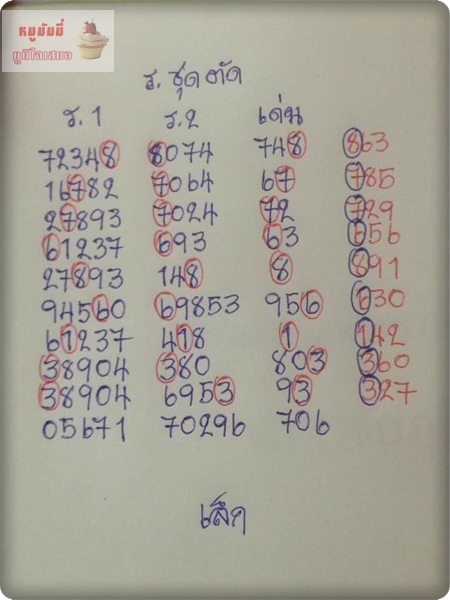 หมูมัมมี่
ภูมิใจเสนอ
ร. ชุด ตัด
ร. 1 ร. 2 เด่น
72348 8074 748 863
16782 7064 67 785
27893 7024 72 729
61237 693 63 656
27893 148 8 891
94560 69853 956 630
61237 418 1 142
38904 380 803 360
38904 6953 93 327
05671 70296 706